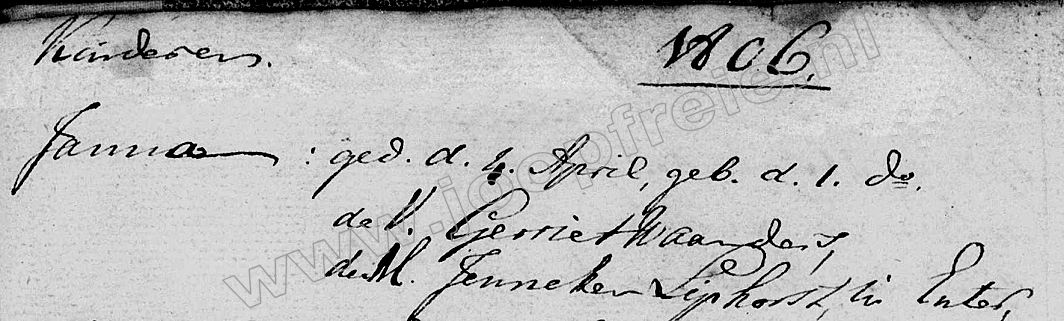 Kinderen. 1806.
Janna : ged. d. 4. April, geb. d. 1. do.
de V. Gerriet Waanders,
de M. Jenneken Liphorst, in Enter,
www.igopfrei.nl